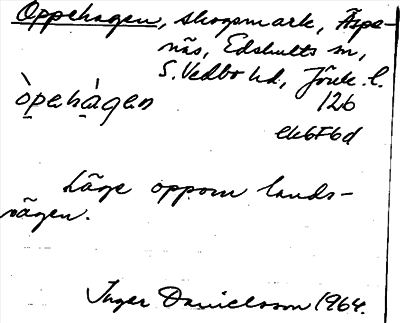 Oppehagen, skogsmark, Äspe-
näs, Edshults sn,
S. Vedbo hd, Jönk. l.
òpehàgen 126
ek6F6d
Läge oppom lands-
vägen.
Inger Danielsson 1964.